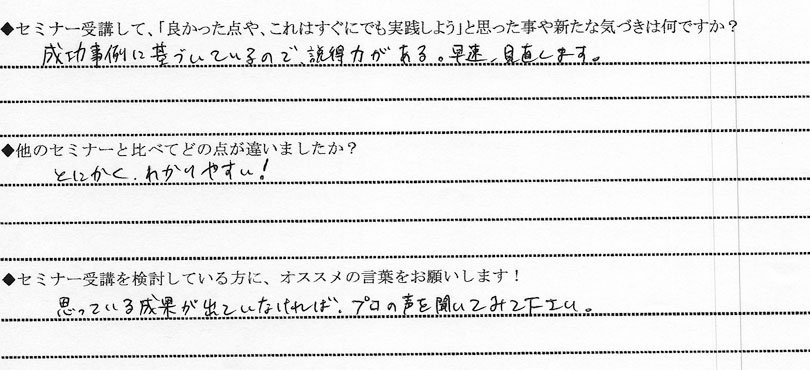 ◆セミナー受講して、「良かった点や、これはすぐにでも実践しよう」と思った事や新たな気づきは何ですか？
成功事例に基づいているので、説得力がある。早速、見直します。
◆他のセミナーと比べてどの点が違いましたか？
とにかく、わかりやすい！
◆セミナー受講を検討している方に、オススメの言葉をお願いします！
思っている成果が出ていなければ、プロの声を聞いてみて下さい。